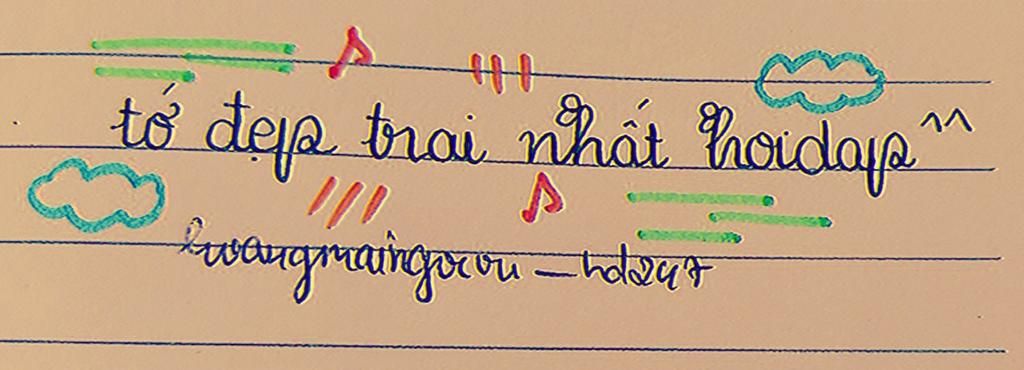 tớ đẹp trai nhất hoidap ^^
— hd247